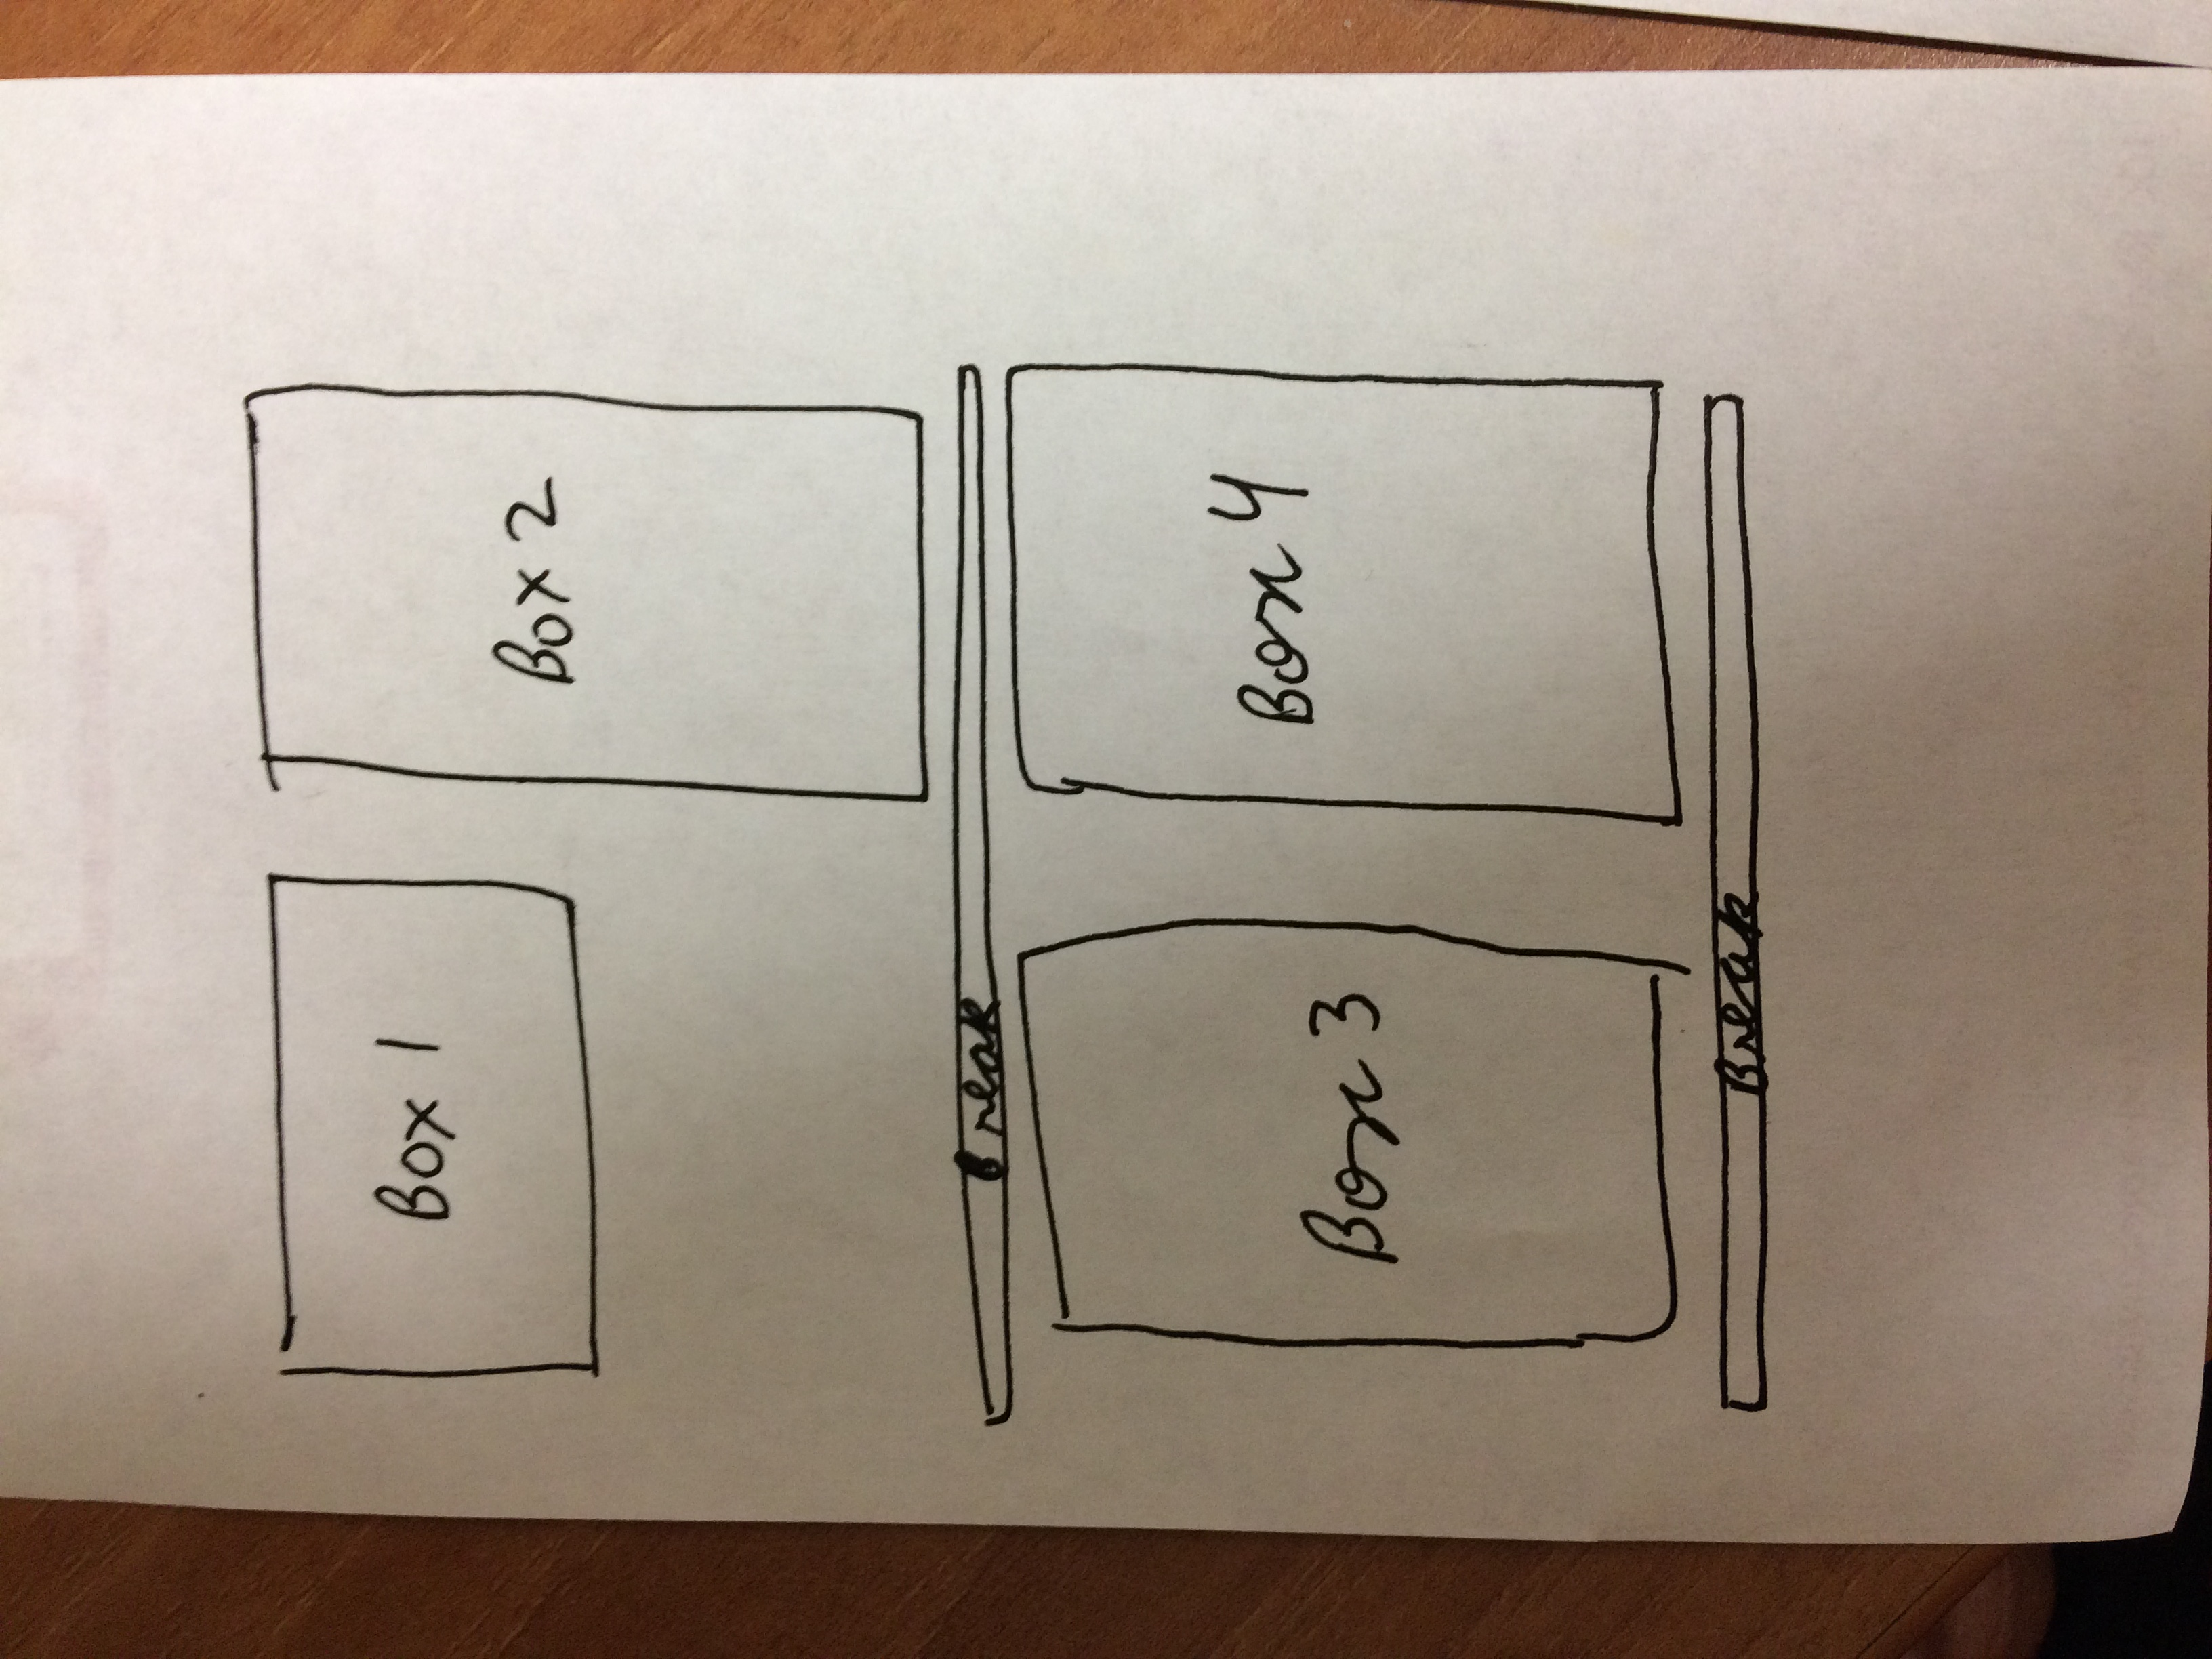 Box 1
Box 2
Break
Box 3
Box 4
Break